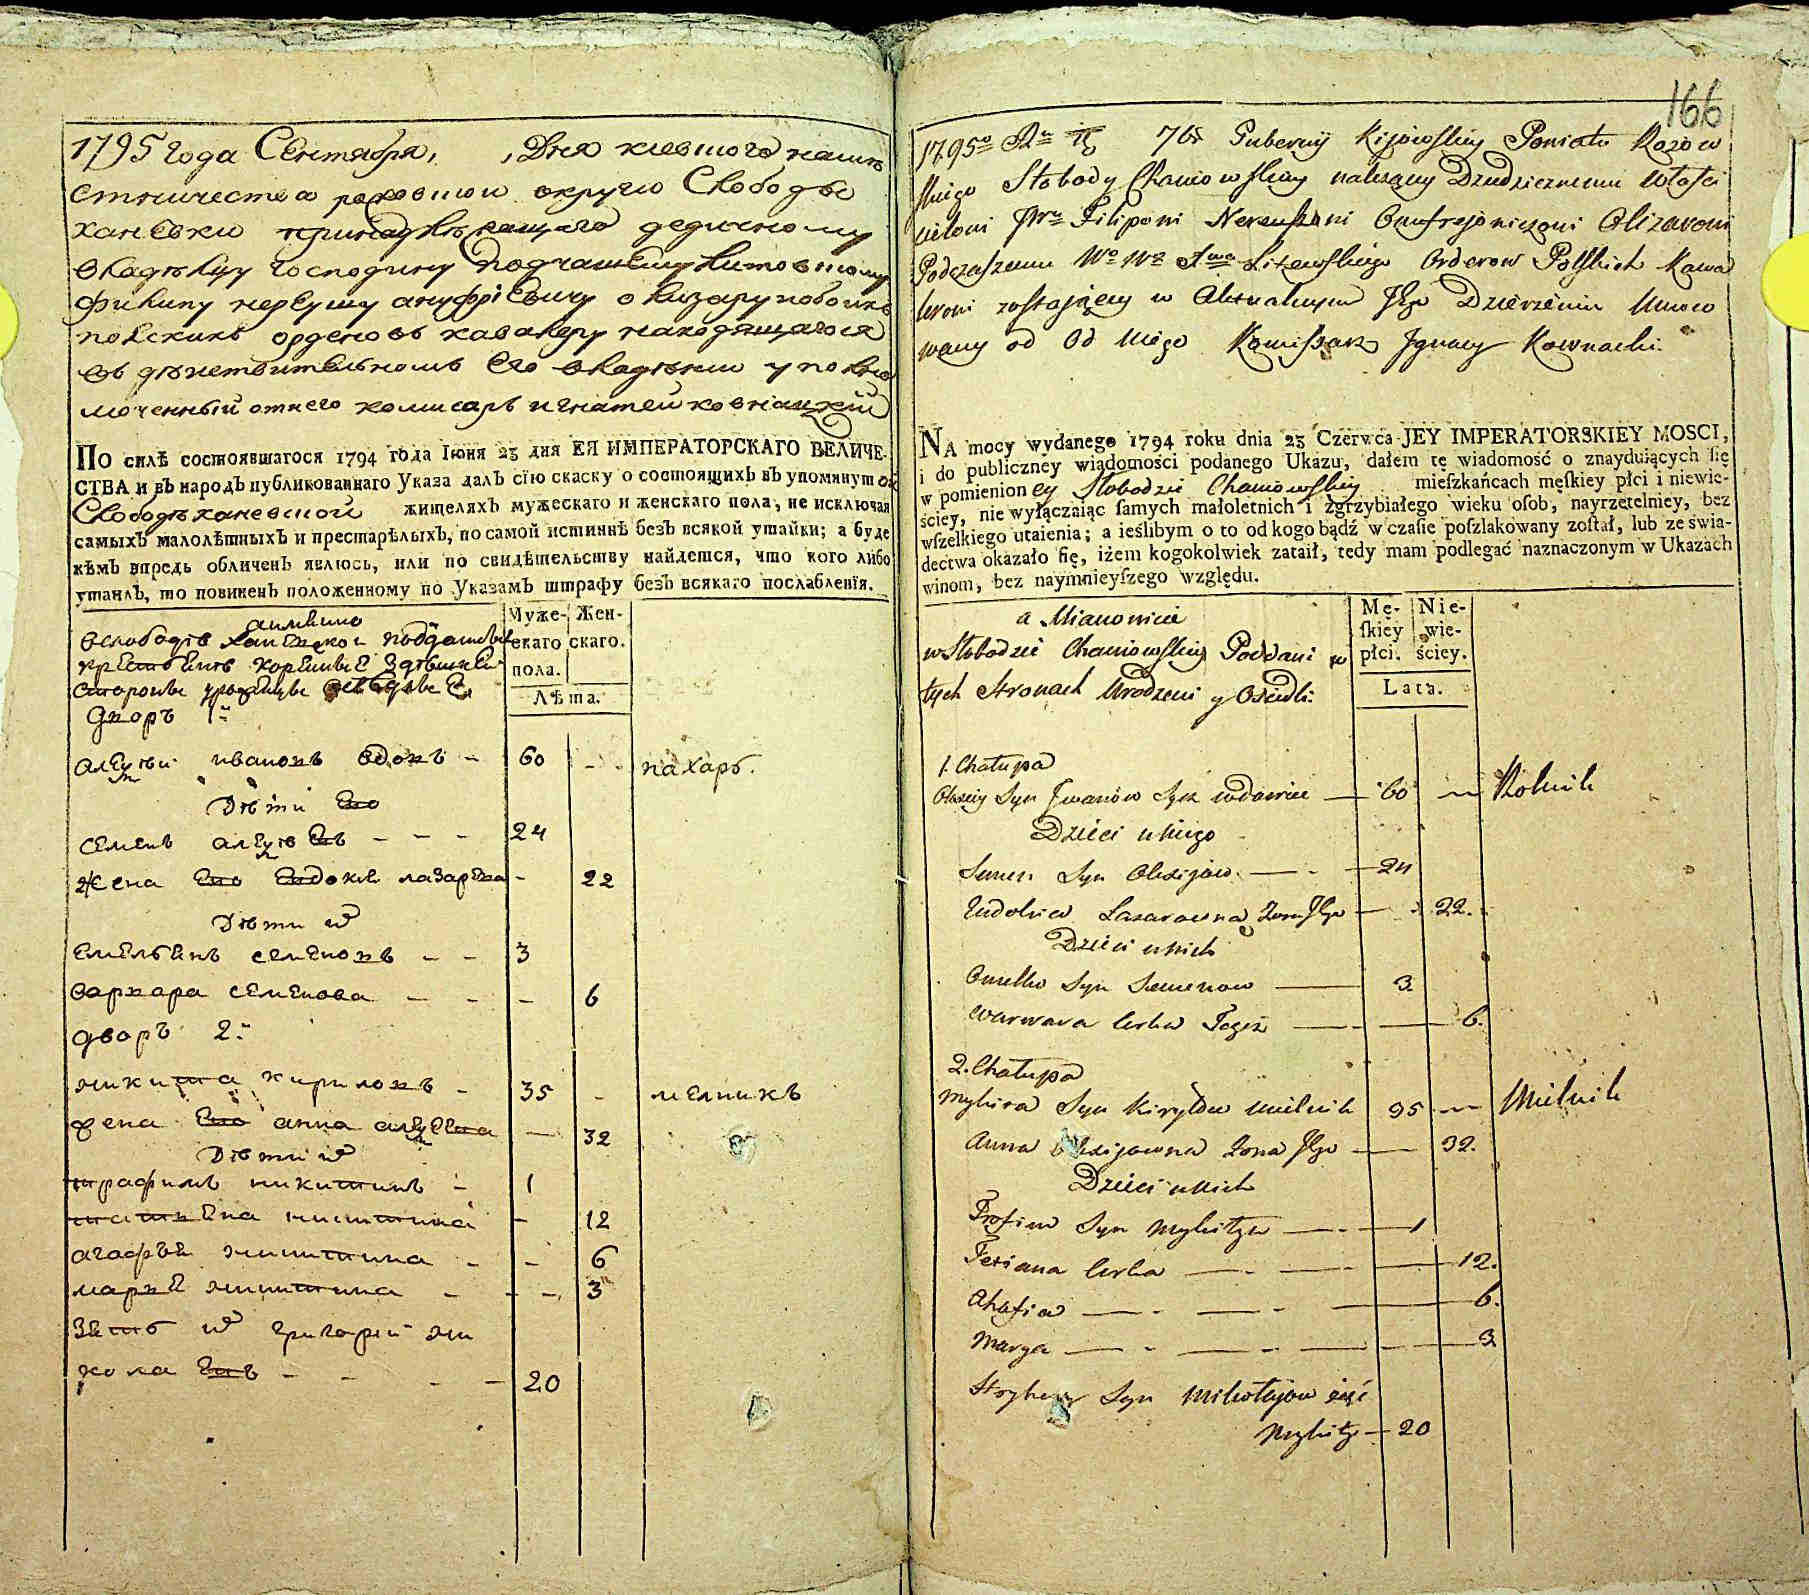 166
1795 года Сентября, Дня киевского намѣ
стничества округи Слободы
ханевки принадлѣжащаго дедичному
владѣлцу господину подчашему литовскому
филипу нереушу ануфріевичу олизару
полскихъ орденовъ кавалеру находящагося
въ дѣиствителномъ его владѣнии уполно
моченный отнего комисаръ игнатей ковнацкій
ПО силѣ состоявшагося 1794 года Іюня 23 дня ЕЯ ИМПЕРАТОРСКАГО ВЕЛИЧЕ-
СТВА и въ народъ публикованнаго Указа далъ сію скаску о состоящихъ въ упомянутой
Слободѣ ханевской жителяхъ мужескаго и женскаго пола, не исключая
самыхъ малолѣтныхъ и престарѣлыхъ, по самой истиннѣ безъ всякой утайки; а буде
кѣмъ впредь обличенъ явлюсь, или по свидѣтельству найдется, что кого либо
утаилъ, то повиненъ положенному по Указамъ штрафу безъ всякаго послабленія.
имянно
вслободѣ ханевской
Муже- Жен-
скаго скаго.
пола.
Лѣта.
Дворъ 1й
алеѯѣи ивановъ вдовъ 60 пахарь.
Дѣти Его
семенъ алеѯѣевъ 24
жена Его Евдокия лазарева 22
Дѣти их
емельянъ семеновъ 3
варвара семенова 6
дворъ 2й
никита кириловъ 35 мелникъ
жена Его анна алеѯеева 32
Дѣти их
трафимъ никитинъ 1
татьяна никитина 12
агафья никитина 6
марья никитина 3
зять их григорей ни
колаевъ 20
1795o Ru Gubernij Kijowskiey Powiatu
Słobody Chaniowskiey należącey Dziedzicznemu Właści
cielowi JWu Filipowi Nereuszowi Onufrejowiczowi Olizarowi
Podczaszemu Litewskiego Orderow Polskich Kawa
lerowi zostającey w Aktualnym Jego Dzierżeniu Umoco
wany od Od Niego Komissarz Jgnacy Kownacki
NA mocy wydanego 1794 roku dnia 23 Czerwca JEY IMPERATORSKIEY MOSCI,
i do publiczney wiadomości podanego Ukazu, dałem tę wiadomość o znayduiących ſię
w pomienioney Słobodzie Chaniowskiey mieſzkańcach męſkiey płci i niewie-
ściey, nie wyłączaiąc ſamych małoletnich i zgrzybiałego wieku oſob, nayrzetelniey, bez
wſzelkiego utaienia; a ieślibym o to od kogo bądź w czaſie poſzlakowany zoſtał, lub ze świa-
dectwa okazało ſię, iżem kogokolwiek zataił, tedy mam podlegać naznaczonym w Ukazach
winom, bez naymnieyſzego względu.
a Mianowicie
w Słobodzie Chaniowskiey Poddani w
tych Stronach Urodzeni y Osiedli
Mę- Nie-
ſkiey wie-
płci. ściey.
Lata.
1. Chałupa
Olexiy Syn Jwanów wdowiec 60 Rolnik
Dzieci u niego
Semen Syn Olexijow 24
Eudokia Lazarowna Zona Jego 22.
Dzieci u nich
Omelko Syn Semenow 3
Warwara Corka Tegoż 6.
2. Chałupa
Mykita Syn Kiryłow Mielnik 35 Mielnik
Anna Olexijowna Zona Jego 32.
Dzieci u nich
Trofim Syn Mykity 1
Tetiana Corka 12.
Ahafia 6.
Marya 3
Hryhory Syn Mikołajow zięć
Mykity 20